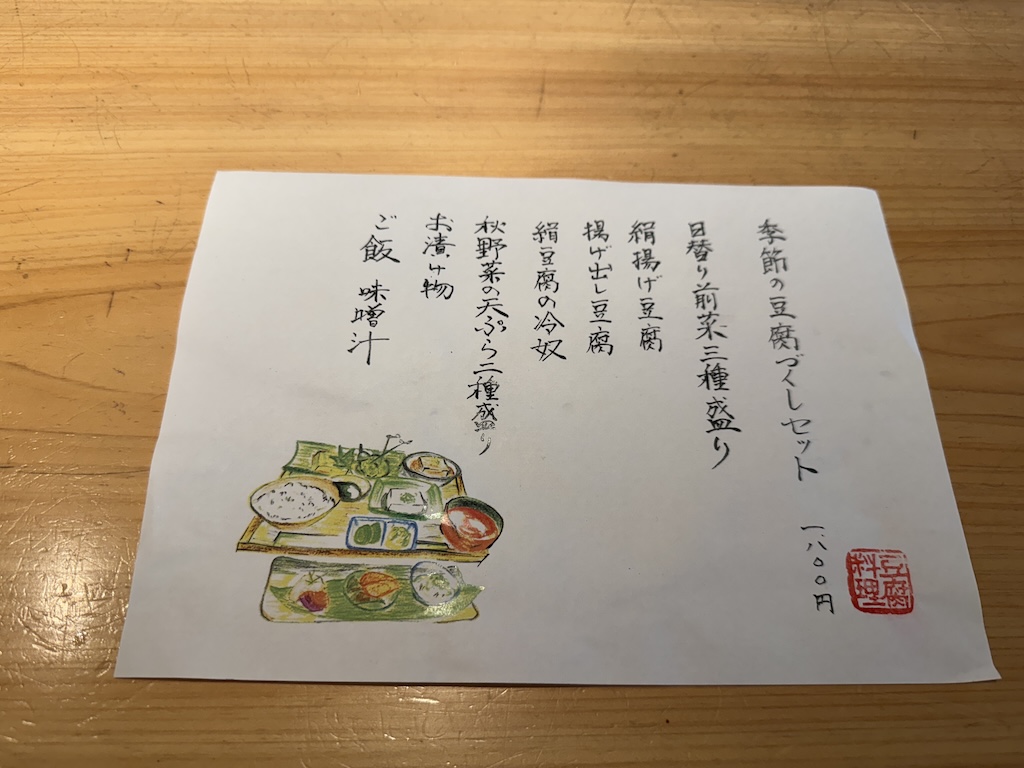 季節の豆腐づくしセット 一、八〇〇円
日替り前菜三種盛り
絹揚げ豆腐
揚げ出し豆腐
絹豆腐の冷奴
秋野菜の天ぷら二種盛り
お漬け物
ご飯 味噌汁